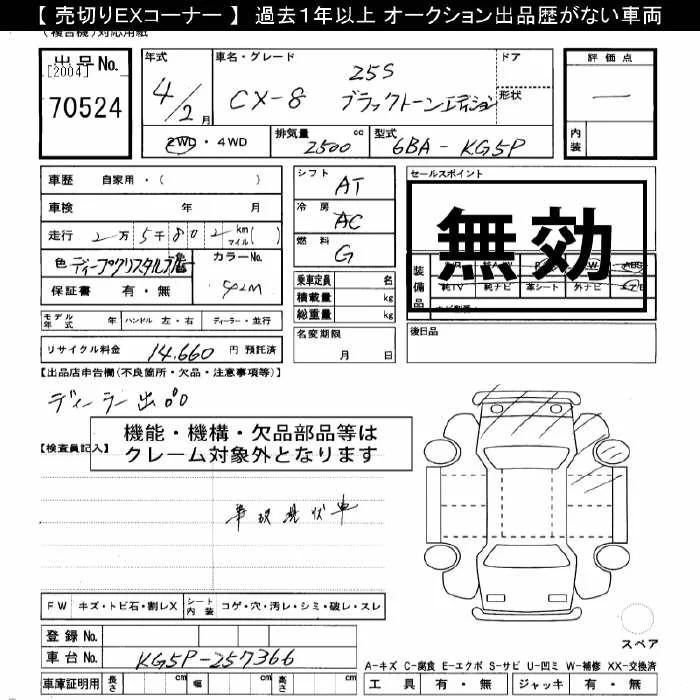 【 売切りEXコーナー 】 過去1年以上 オークション出品歴がない車両
(複合機)対応用紙
出品No.
[2004]
70524
年式
4/2月
車名・グレード
25S
CX-8 ブラックトーンエディション
ドア
形状
評価点
一
内装
2WD・4WD
排気量 2500 cc
型式 6BA-KG5P
車歴 自家用・( )
車検 年 月
走行 2万5千802 km マイル( )
色 ディープクリスタルブルー
カラーNo.
42M
保証書 有・無
モデル年式 年 ハンドル 左・右 ディーラー・並行
リサイクル料金 14,660 円 預託済
シフト AT
冷房 AC
燃料 G
乗車定員 名
積載量 kg
総重量 kg
名変期限
月 日
セールスポイント
無効
装備品
純TV 純ナビ 革シート 外ナビ
後日品
【出品店申告欄(不良箇所・欠品・注意事項等)】
ディーラー出品
機能・機構・欠品部品等は
クレーム対象外となります
【検査員記入】
事故現状車
FW キズ・トビ石・割レX シート内装 コゲ・穴・汚レ・シミ・破レ・スレ
登録No.
車台No. KG5P-257366
車庫証明用 長さ cm 幅 cm 高さ cm
スペア
A-キズ C-腐食 E-エクボ S-サビ U-凹ミ W-補修 XX-交換済
工具 有・無 ジャッキ 有・無